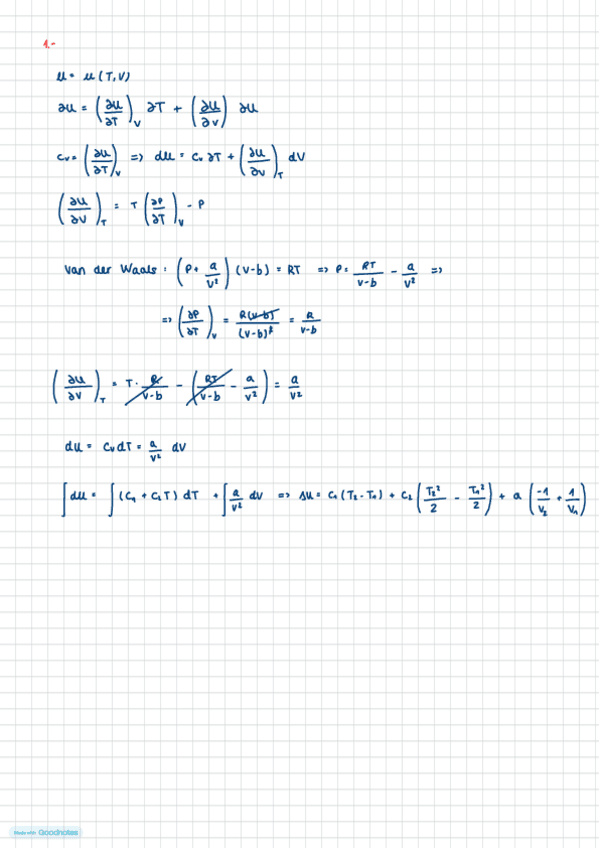 1.-
u = u (T,V)
∂u = (∂u/∂T)_V ∂T + (∂u/∂v) ∂u
c_v = (∂u/∂T)_V => du = c_v ∂T + (∂u/∂v)_T dV
(∂u/∂V)_T = T (∂P/∂T)_V - P
Van der Waals : (P + a/V²) (V-b) = RT => P = RT/(V-b) - a/V² =>
=> (∂P/∂T)_V = R(V-b)/(V-b)² = R/(V-b)
(∂u/∂V)_T = T · R/(V-b) - (RT/(V-b) - a/V²) = a/V²
du = C_v dT = a/V² dV
∫du = ∫(C₁ + C₂T) dT + ∫a/V² dV => Δu = C₁ (T₂ - T₁) + C₂ (T₂²/2 - T₁²/2) + a (-1/V₂ + 1/V₁)
Made with Goodnotes